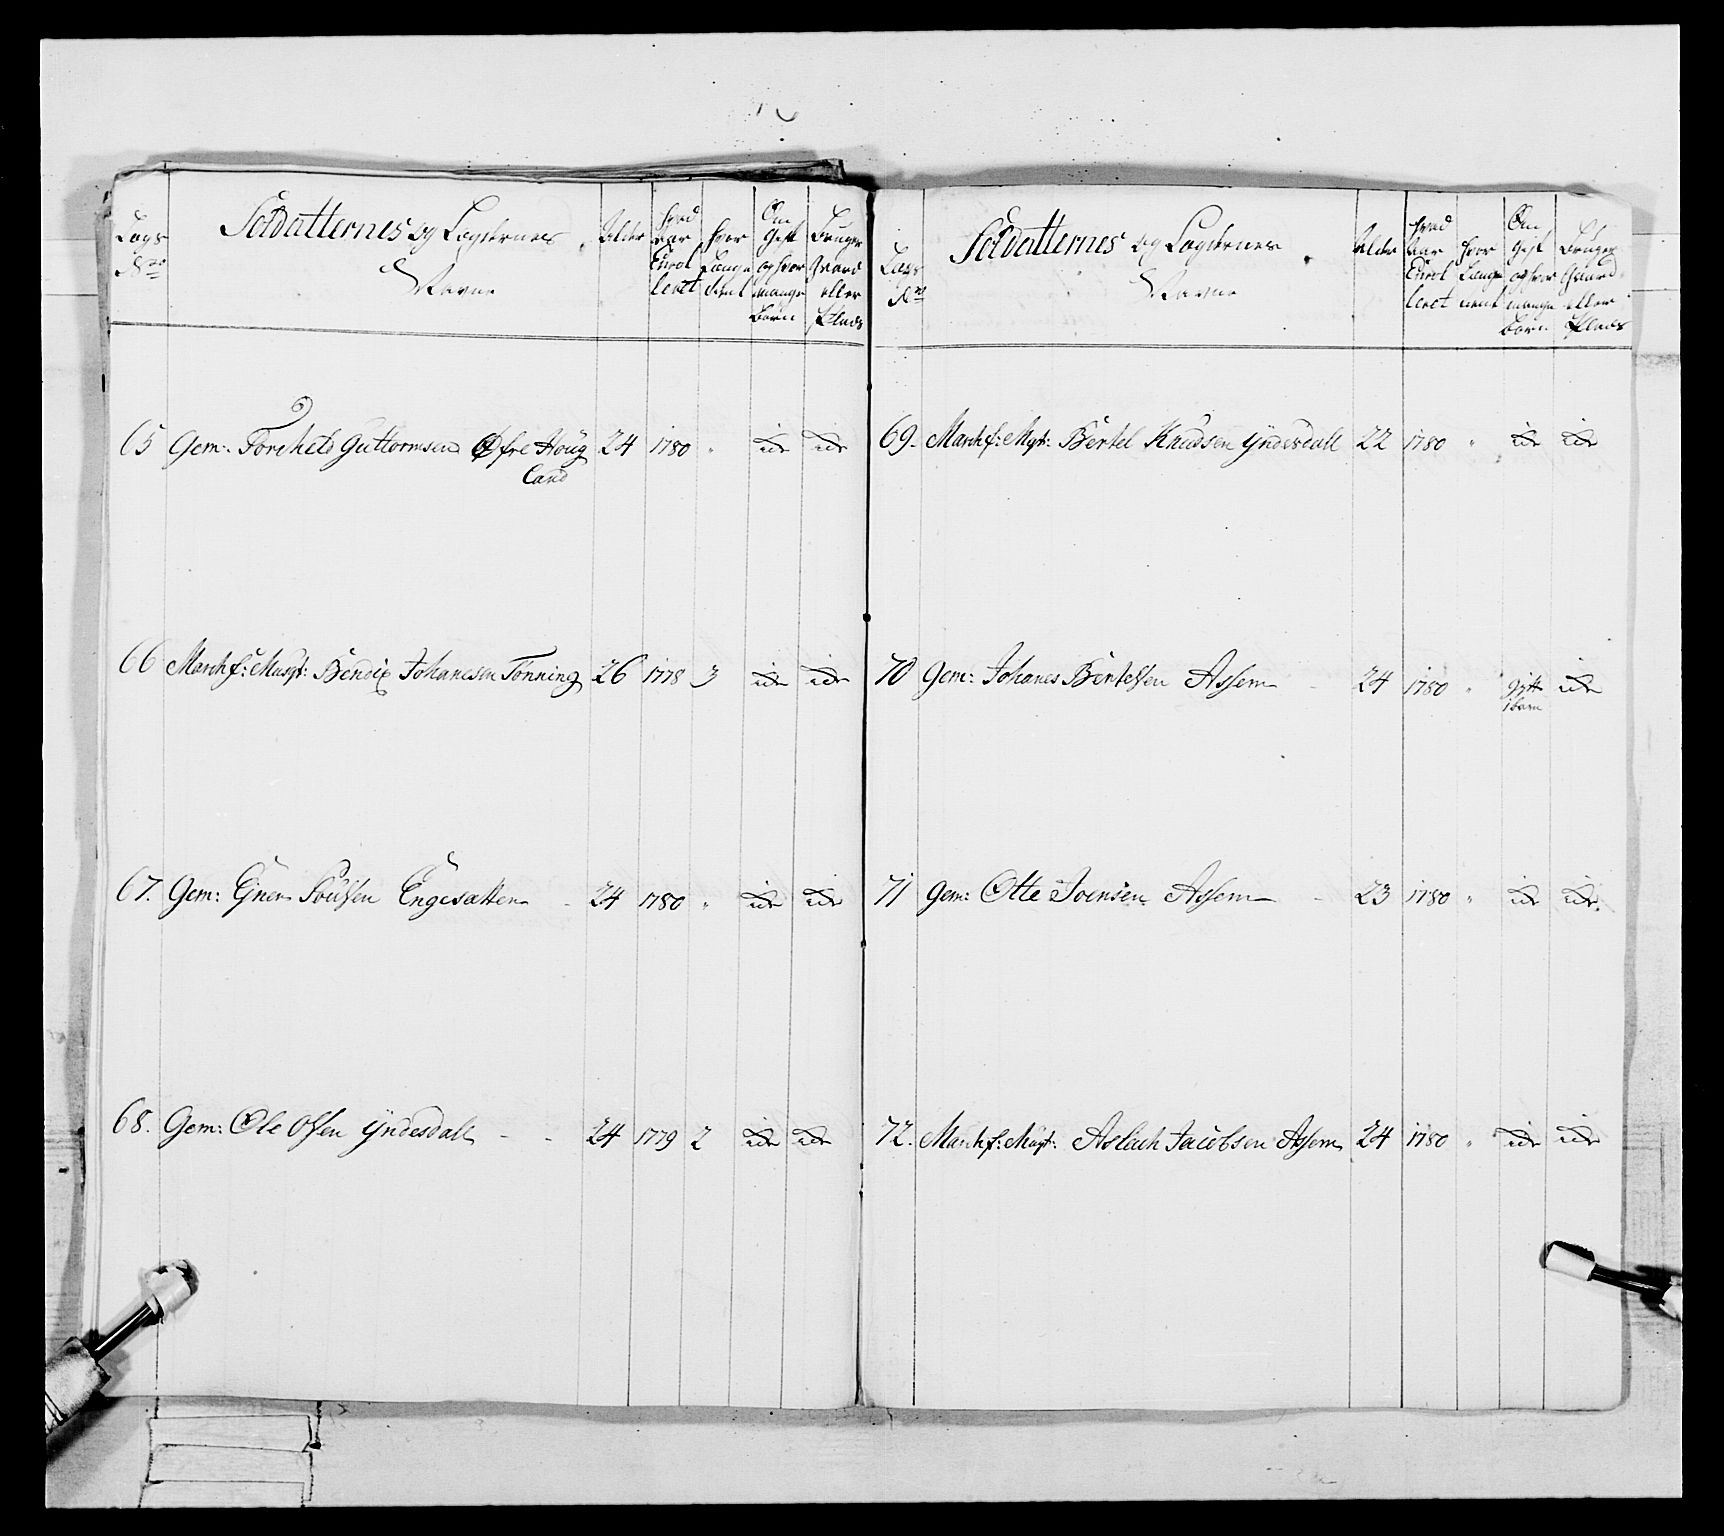 Lags No Soldatternes og Lagdernes Navne Alder hvad Aar Enrol leret hvor Længe tient Om Gift og hvor mange Børn Bruger Gaard eller Plads
65 Gem: Torchels Guttormsen Øfre Höug 24 1780 " idr idr
land
66 Marchf: Musqt: Bendix Johanesen Tonning 26 1778 3 idr idr
67. Gem: Ejner Poulsen Engesætter - 24 1780 " idr idr
68. Gem: Ole Olsen Yndesdall - - 24 1779 2 idr idr
Lags No Soldatternes og Lagdernes Navne Alder hvad Aar Enrol leret hvor Længe tient Om Gift og hvor mange Børn Bruger Gaard eller Plads
69. Marchf: Mqt: Bertel Knudsen Yndesdall 22 1780 " idr idr
70 Gem: Johanes Bertelsen Assem - 24 1780 " gift idr
1 barn
71 Gem: Otte Joensen Assem - 23 1780 " idr idr
72. Marchf: Muqt: Aslach Jacobsen Assem 24 1780 " idr idr